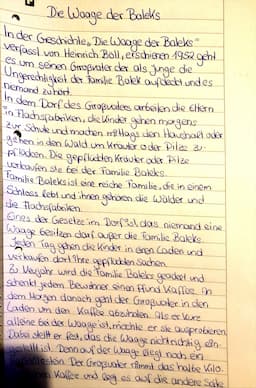 Die Waage der Baleks
In der Geschichte „Die Waage der Baleks"
verfasst von Heinrich Böll, erschienen 1952 geht
es um seinen Großvater der als Junge die
Ungerechtigkeit der Familie Balek aufdeckt und es
niemand zuhört.
In dem Dorf des Großvaters arbeiten die Eltern
in Flachsfabriken, die Kinder gehen morgens
zur Schule und machen mittags den Haushalt oder
gehen in den Wald um Kräuter oder Pilze zu
pflücken. Die gepflückten Kräuter oder Pilze
verkaufen sie bei der Familie Baleks.
Familie Baleks ist eine reiche Familie, die in einem
Schloss lebt und ihnen gehören die Wälder und
die Flachsfabriken.
Eines der Gesetze im Dorf ist das niemand eine
Waage besitzen darf außer die Familie Baleks.
Jeden Tag gehen die Kinder in ihren Laden und
verkaufen dort ihre gepflückten Sachen.
Zu Neujahr wird die Familie Baleks geadelt und
schenkt jedem Bewohner einen Pfund Kaffee. In
dem Morgen danach geht der Großvater in den
Laden um den Kaffee abzuholen. Als er kurz
alleine bei der Waage ist, möchte er sie ausprobieren.
Dabei stellt er fest, das die Waage nicht richtig ein-
gestellt ist. Denn auf der Waage liegt noch ein
Der Großvater nimmt das halbe Kilo
Kaffee und legt es auf die andere Seite